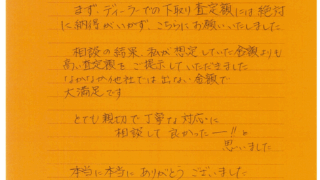 まず、ディーラーでの下取り査定額には絶対
に納得がいかず、こちらにお願いいたしました
相談の結果、私が想定していた金額よりも
高い査定額をご提示していただきました
なかなか他社では出ない金額で
大満足です
とても親切で丁寧な対応に
相談して良かったー!!と
思いました
本当に本当にありがとうございました